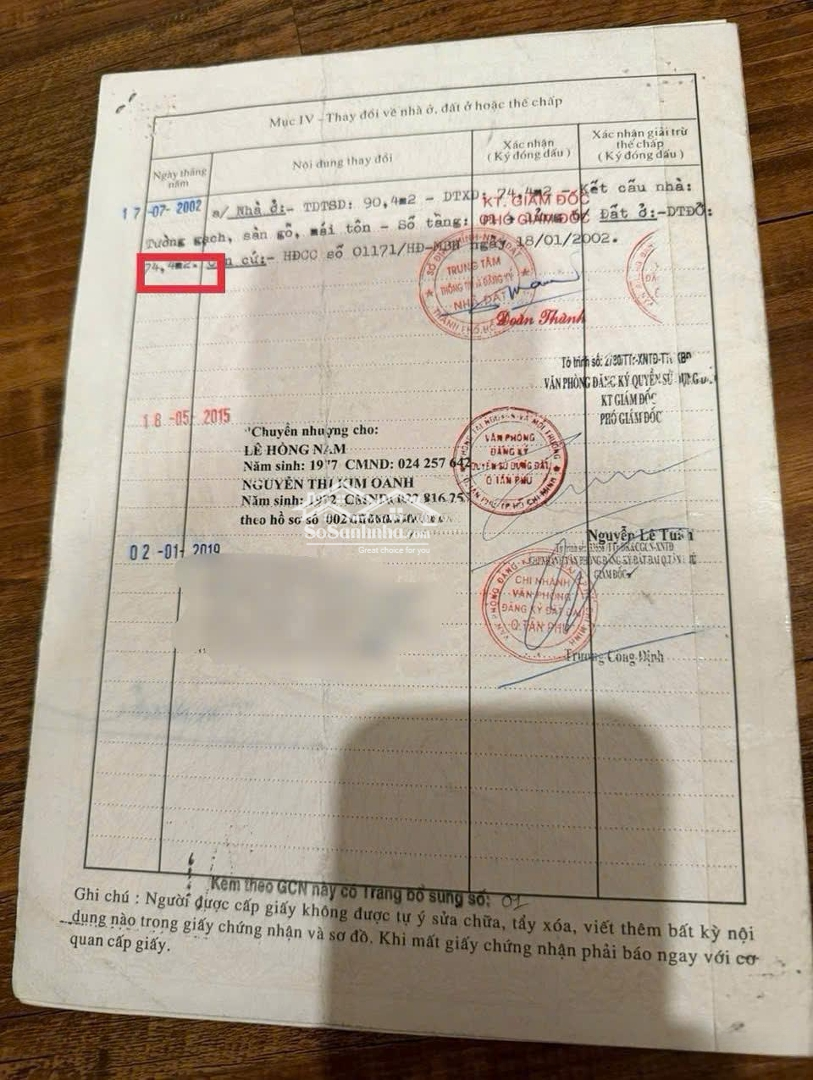 Mục IV - Thay đổi về nhà ở, đất ở hoặc thế chấp
Ngày tháng năm
Nội dung thay đổi
Xác nhận
( Ký đóng dấu )
Xác nhận giải trừ
thế chấp
( Ký đóng dấu )
17 -07- 2002
a/ Nhà ở:- TDTSD: 90,4m2 - DTXD: 74,4m2 - Kết cấu nhà:
Tường gạch, sàn gỗ, mái tôn - Số tầng: 01 + lửng b/ Đất ở:-DTĐỞ:
74,4m2. Căn cứ:- HĐCC số 01171/HĐ-MBN ngày 18/01/2002.
KT. GIÁM ĐỐC
PHÓ GIÁM ĐỐC
TRUNG TÂM
THÔNG TIN VÀ ĐĂNG KÝ
NHÀ ĐẤT
Đoàn Thành
VĂN PHÒNG ĐĂNG KÝ QUYỀN SỬ DỤNG
KT GIÁM ĐỐC
PHÓ GIÁM ĐỐC
18 -05- 2015
"Chuyển nhượng cho:
LÊ HỒNG NAM
Năm sinh: 1977 CMND: 024 257 642
NGUYỄN THỊ KIM OANH
Năm sinh: 1972 CMND: 816 25
theo hồ sơ số
VĂN PHÒNG
ĐĂNG KÝ
QUYỀN SỬ DỤNG ĐẤT
Q.TÂN PHÚ
SoSanhnha.com
Great choice for you
Nguyễn Lê Tuấn
02 -01- 2019
GIÁM ĐỐC
CHI NHÁNH
VĂN PHÒNG
ĐĂNG KÝ ĐẤT ĐAI
Q.TÂN PHÚ
Trương Công Định
Kèm theo GCN này có Trang bổ sung số: 01
Ghi chú : Người được cấp giấy không được tự ý sửa chữa, tẩy xóa, viết thêm bất kỳ nội
dung nào trong giấy chứng nhận và sơ đồ. Khi mất giấy chứng nhận phải báo ngay với cơ
quan cấp giấy.